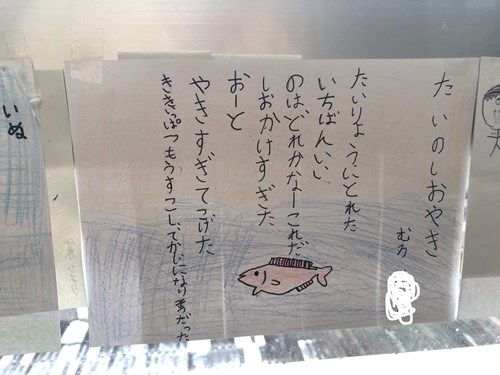 たいのしおやき
たいりょうにとれた
いちばんいい
のはどれかなーこれだ
しおかけすぎた
おーと
やきすぎてこげた
ききいっぱつもうすこしでかじになり だった
いぬ